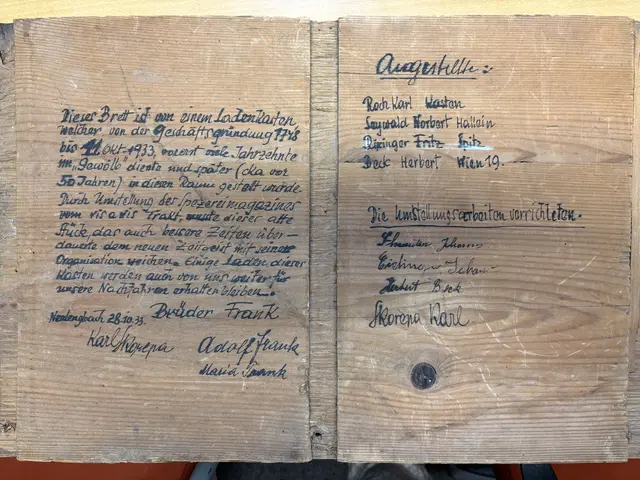 Dieses Brett ist von einem Ladenkasten,
welcher von der Geschäftsgründung 1778
bis Okt. 1933, vorerst viele Jahrzehnte
im „Gewölb" diente und später (cka vor
50 Jahren) in diesen Raum gestellt wurde.
Durch Umstellung der Spezereimagazines
vom vis a vis Trakt, musste dieses alte
Stück, das auch bessere Zeiten über-
dauerte dem neuen Zeitgeist mit seiner
Organisation weichen. Einige Laden dieser
Kasten werden auch von uns weiter für
unsere Nachfahren erhalten bleiben.
Neulengbach 28.10.33. Brüder Frank
Karl Skorepa Adolf Frank
Maria Frank
Angestellte:
Roch Karl Kasten
Norbert Hallein
Fritz Spitz
Beck Herbert Wien 19.
Die Umstellungsarbeiten verrichteten.
Herbert Beck
Skorepa Karl